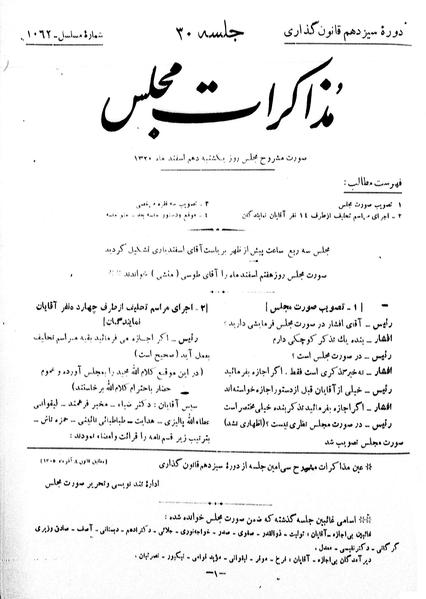 دورهٔ سیزدهم قانون گذاری
جلسه ۳۰
شمارهٔ مسلسل ـ ۱۰۶۲
مذاکرات مجلس
صورت مشروح مجلس روز یکشنبه دهم اسفند ماه ۱۳۲۰
فهرست مطالب:
۱ تصویب صورت مجلس
۲ ـ اجرای مراسم تحلیف از طرف ۱۴ نفر آقایان نمایندگان
۳ ـ تصویب
۴ ـ موقع و دستور جلسه بعد ـ ختم جلسه
مجلس سه ربع ساعت پیش از ظهر بریاست آقای اسفندیاری تشکیل گردید
صورت مجلس روز هفتم اسفند ماه را آقای طوسی (منشی) خواندند
[ ۱ ـ تصویب صورت مجلس ]
رئیس ـ آقای افشار در صورت مجلس فرمایشی دارید؟
افشار ـ بنده یك تذکر کوچکی دارم
رئیس ـ در صورت مجلس است؟
افشار ـ نه خیر تذکری است فقط. اگر اجازه بفرمائید
رئیس ـ خیلی از آقایان قبل از دستور اجازه خواسته‌اند
افشار ـ اگر اجازه بفرمائید تذکر بنده خیلی مختصر است
رئیس ـ در صورت مجلس نظری نیست؟ (اظهاری نشد)
صورت مجلس تصویب شد
[۲ـ اجرای مراسم تحلیف از طرف چهارده نفر آقایان
نمایندگان]
رئیس ـ اگر اجازه می فرمائید بقیه مراسم تحلیف
بعمل آید (صحیح است)
(در این موقع کلام الله مجید را بمجلس آورده و عموم
حضار باحترام کلام الله برخاستند)
سپس آقایان: دکتر ضیاء ـ مخبر فرهمند ـ لیقوانی
عطاءالله پالیزی ـ هدایت ـ طباطبائی نائینی ـ حمزه تاش ـ
بترتیب زیر قسم نامه را قرائت و امضاء نمودند:
※ عین مذاکرات مشروح سی امین جلسه از دورهٔ سیزدهم قانون گذاری
اداره تند نویسی و تحریر صورت مجلس
※ اسامی غائبین جلسه گذشته که ضمن صورت مجلس خوانده شده:
غائبین بی اجازه ـ آقایان: تولیت ـ ذوالقدر ـ صفوی ـ صدر ـ خواجه‌نوری ـ جلائی ـ دکتر ادهم ـ دبستانی ـ آصف ـ صادق وزیری
گرگانی ـ دکتر نفیسی ـ معدل.
دیرآمدگان بی اجازه ـ آقایان: فرخ ـ موقر ـ لیقوانی ـ مؤید قوامی ـ نیکپور ـ نصرتیان.
ـ۱ـ